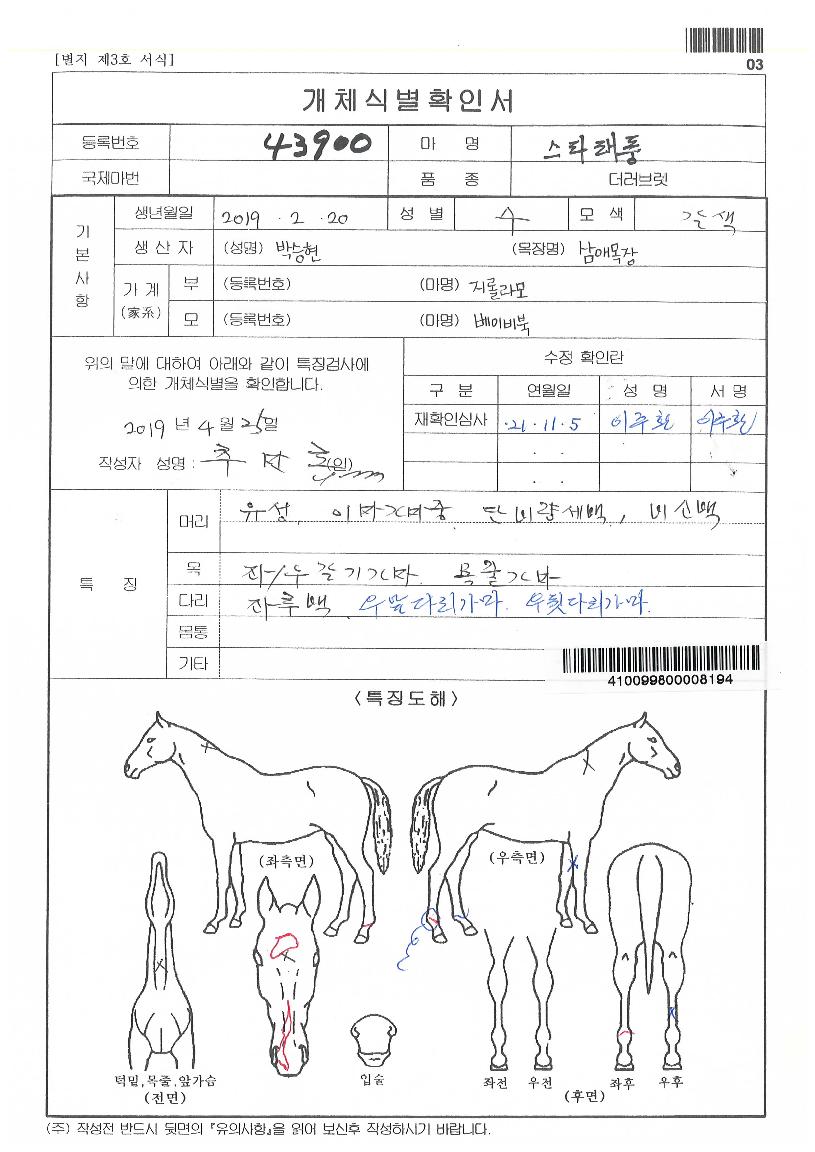 [별지 제3호 서식]
03
개체식별확인서
등록번호 43900 마 명 스타태풍
국제마번 품 종 더러브렛
기본사항
생년월일 2019 . 2 . 20 성 별 수 모 색 갈색
생 산 자 (성명) 박승현 (목장명) 남애목장
가 계 (家系)
부 (등록번호) (마명) 지롤라모
모 (등록번호) (마명) 베이비북
위의 말에 대하여 아래와 같이 특징검사에
의한 개체식별을 확인합니다.
2019 년 4 월 25일
작성자 성명 : (인)
수정 확인란
구 분 연월일 성 명 서 명
재확인심사 .21 . 11 . 5 이주환 이주환
. .
. .
특 징
머리 유성, 단비량세백, 비소백
목
다리 좌후백 우앞다리가마. 우뒷다리가마.
몸통
기타
410099800008194
<특징도해>
(좌측면) (우측면)
턱밑,목줄,앞가슴
(전면)
입술
좌전 우전 좌후 우후
(후면)
(주) 작성전 반드시 뒷면의 『유의사항』을 읽어 보신후 작성하시기 바랍니다.